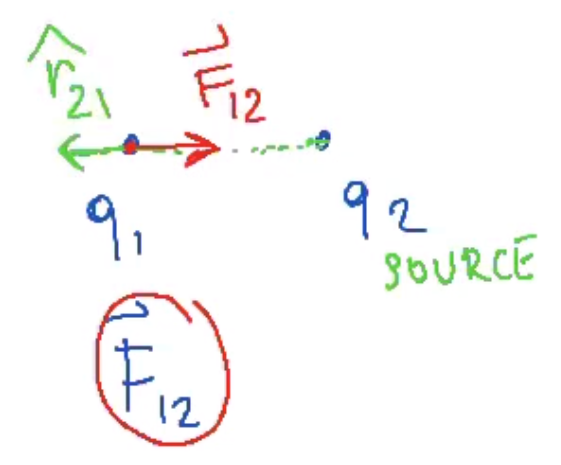 r̂₂₁ F⃗₁₂
q₁ q₂
SOURCE
F⃗₁₂